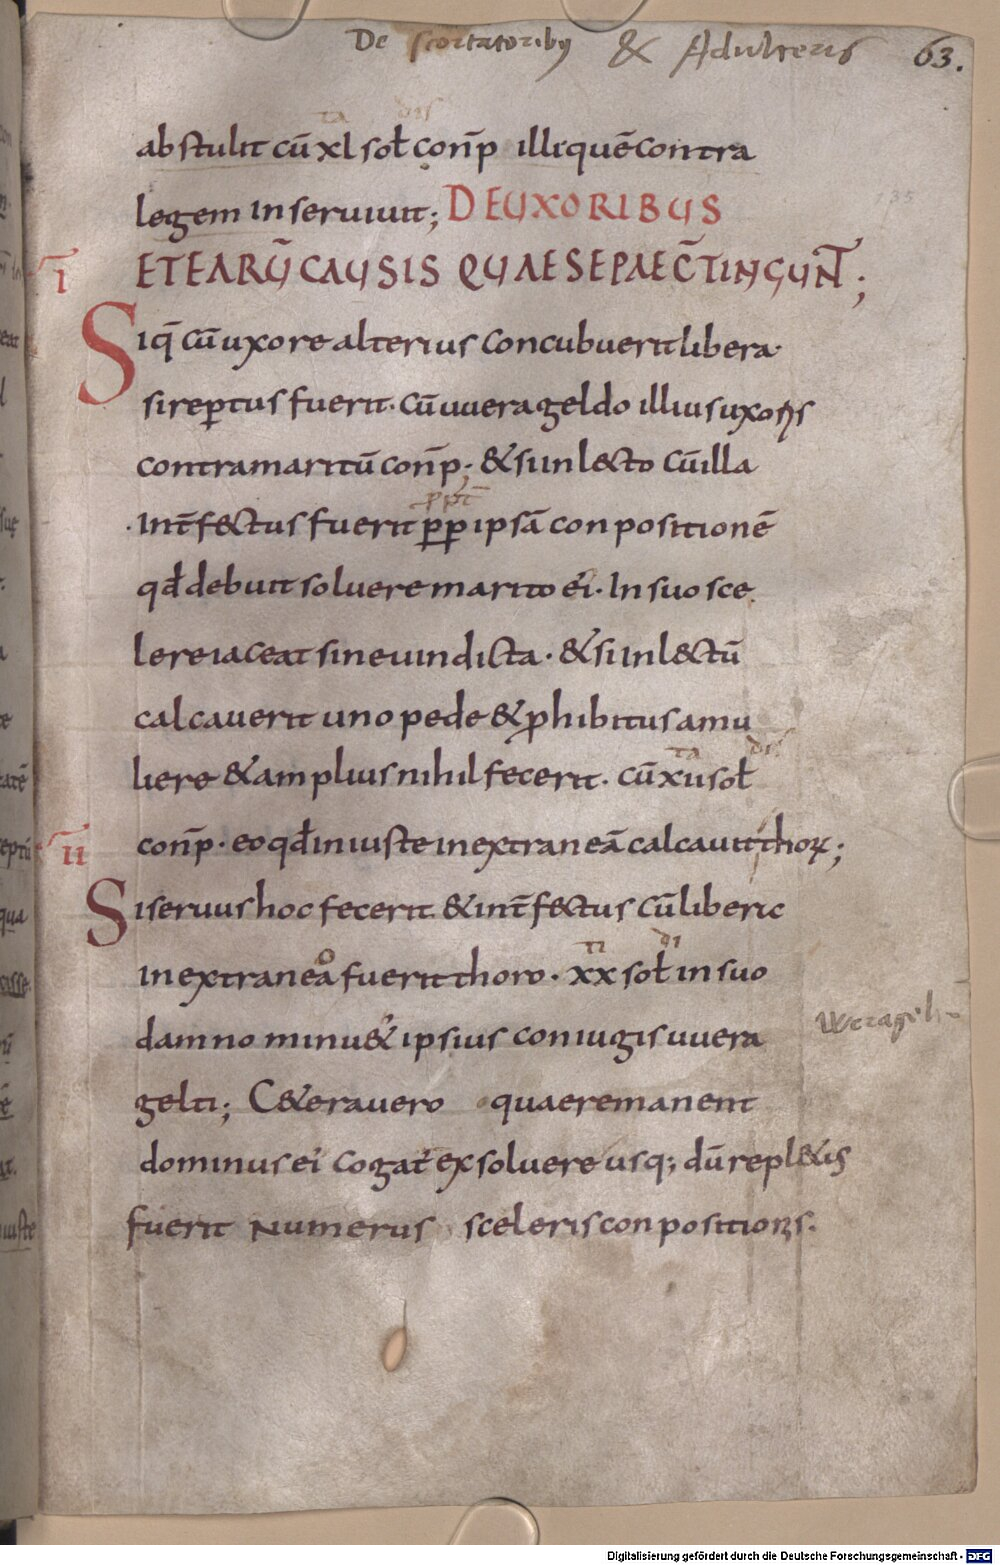 De scortatoribus & Adulteris 63.
abstulit cū xl sol conp̄ illi quē contra
legem inserviuit; DE UXORIBUS
ETEARŪ CAUSIS QUAE SEPAE C̄TINGUNT;
ī
Siq̄ cū uxore alterius concubuerit libera
si reptus fuerit. cū uueragéldo illius uxoris
contra maritū conp̄; & si in lecto cū illa
int̄fectus fuerit pp ipsā conpositionē
qđ debuit soluere marito ei. In suo sce
lere iaceat sine uindicta. & si in lectū
calcauerit uno pede & phibitus a mu
liere & amplius nihil fecerit. cū xii sol
conp̄. eo qđ iniuste in extraneā calcauit thorꝝ;
īī
Si seruus hoc fecerit & int̄fectus cū liberic
in extraneo fuerit thoro. xx sol in suo
damno minu& ipsius coniugis uuera
gelti; C&era uero quae remanent
dominus ei cogat exsoluere usq; dū repl&us
fuerit numerus sceleris conpositionis.
Digitalisierung gefördert durch die Deutsche Forschungsgemeinschaft - DFG